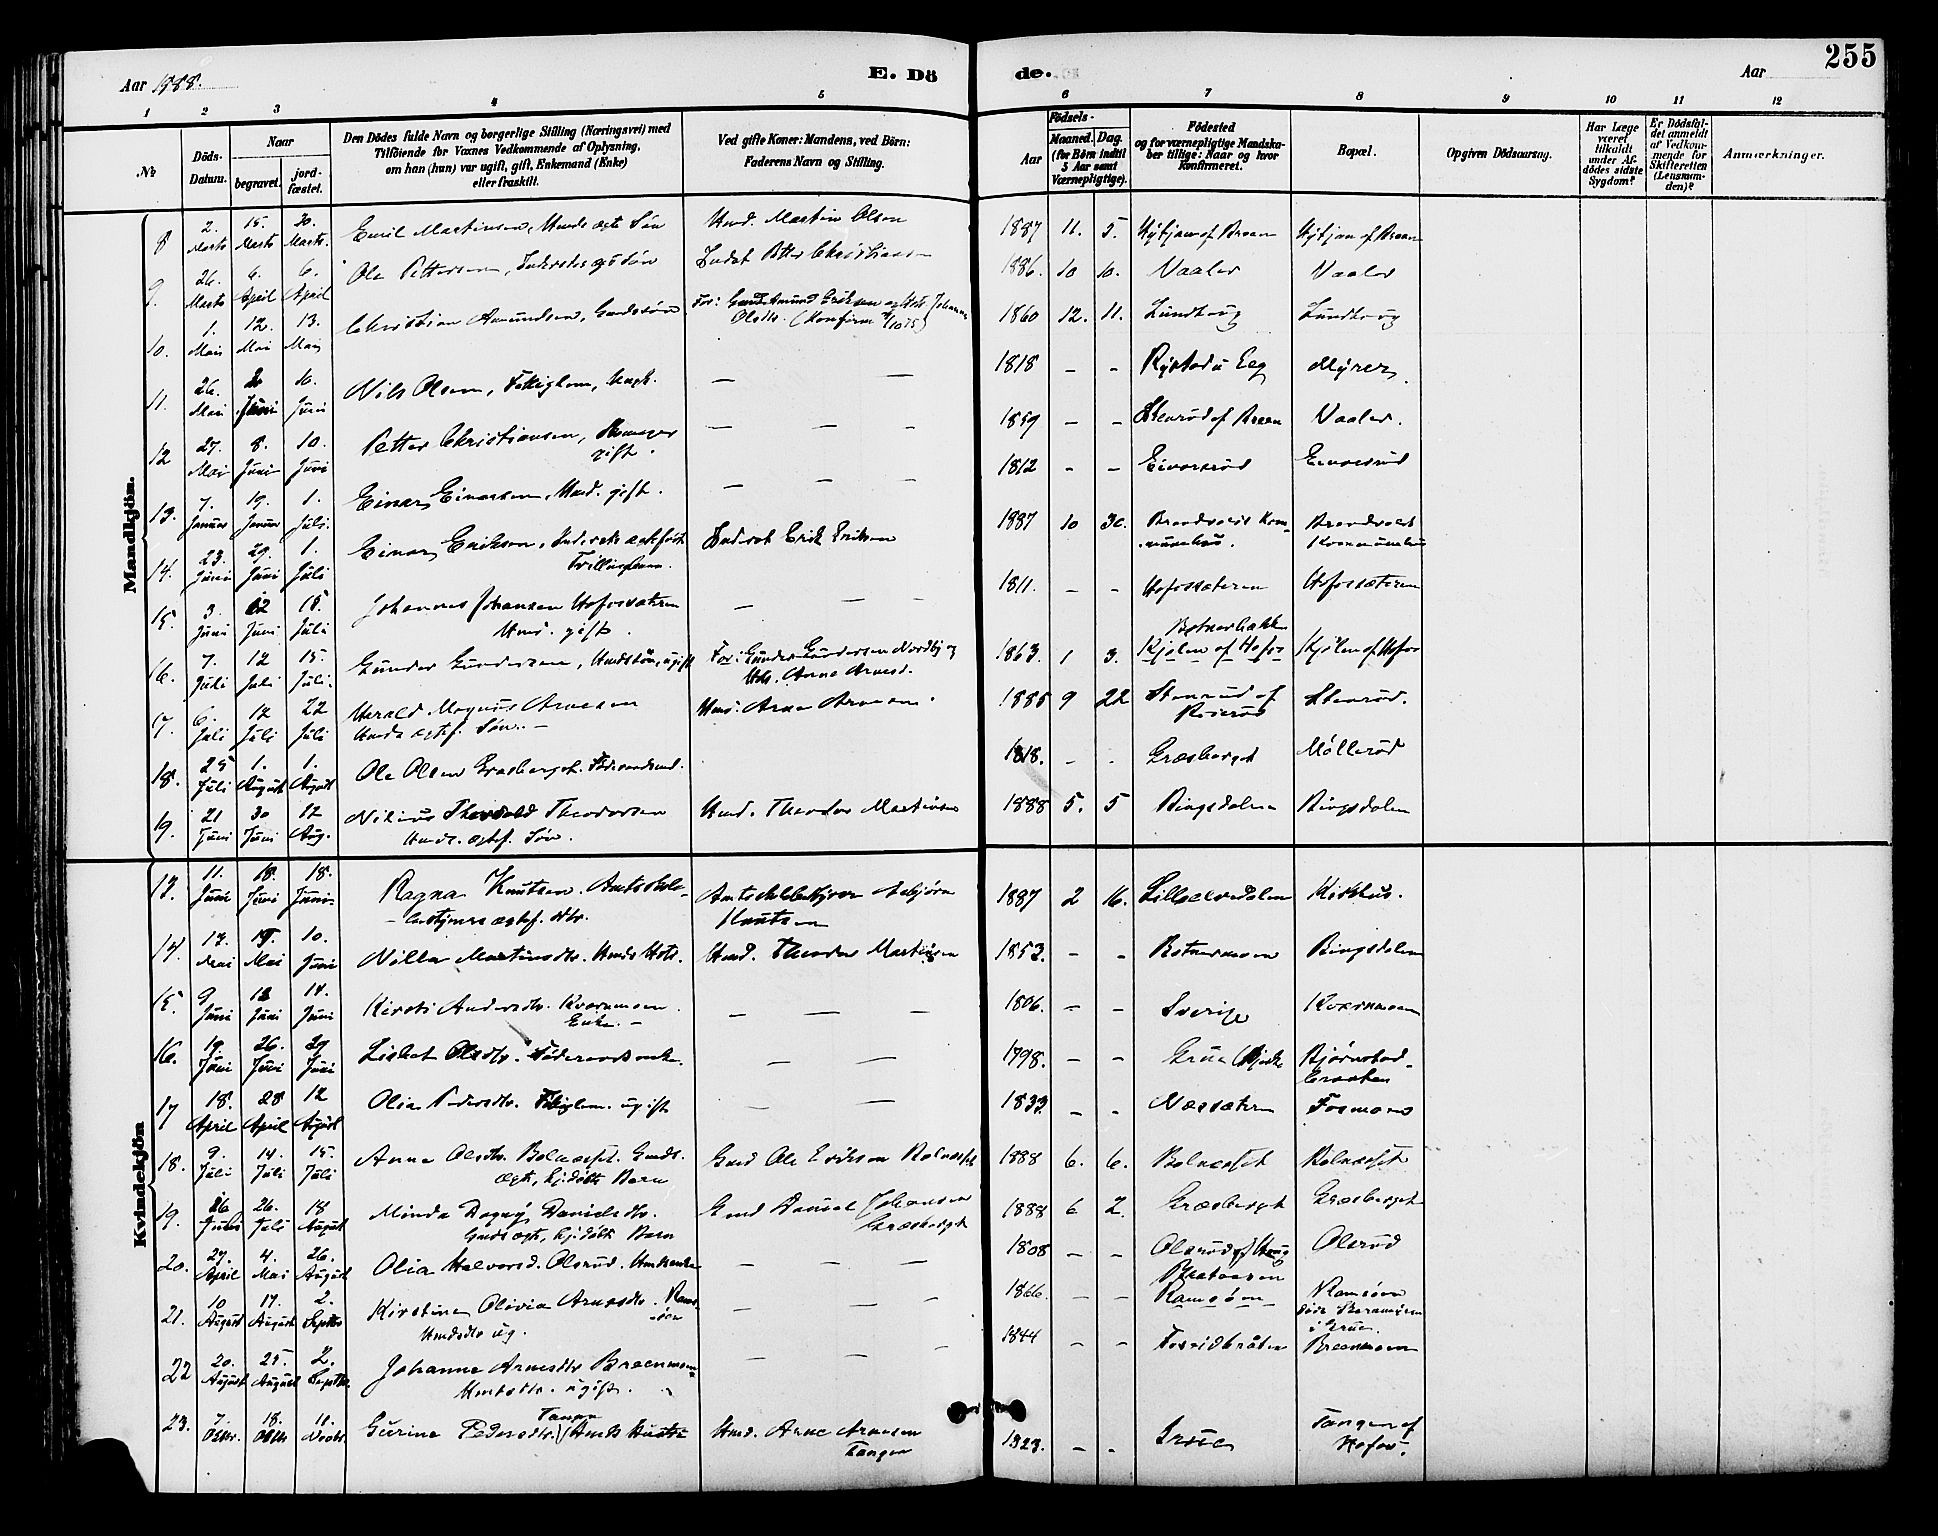 Aar 1888.
E. Dö
de.
Aar
255
1 2 3 4 5 6 7 8 9 10 11 12
№
Döds-Datum.
Naar
begravet.
jordfæstet.
Den Dödes fulde Navn og borgerlige Stilling (Næringsvei) med
Tilföiende for Voxnes Vedkommende af Oplysning,
om han (hun) var ugift, gift, Enkemand (Enke)
eller fraskilt.
Ved gifte Koner: Mandens, ved Börn:
Faderens Navn og Stilling.
Födsels-
Aar
Maaned.
Dag.
(for Börn indtil
5 Aar samt
Værnepligtige).
Födested
og for værnepligtige Mandska-
ber tillige: Naar og hvor
Konfirmeret.
Bopæl.
Opgiven Dödsaarsag.
Har Læge
været
tilkaldt
under Af-
dödes sidste
Sygdom?
Er Dödsfal-
det anmeldt
af Vedkom-
mende for
Skifteretten
(Lensman-
den)?
Anmærkninger.
Mandkjön.
8 2. Marts 15. Marts 20. Marts. Emil Martinsen, Hmds ægte Søn Hmd. Martin Olsen 1887 11. 5. af Braan af Braan
9. 26. Marts 6. April 6. April Ole Pettersen, Inderstes Søn Inderst Petter Christiansen 1886. 10 10. Vaaler Vaaler
10. 1. Mai 12. Mai 13. Mai Christian Amundsen, Gmdssøn For: Gmd Amund Eriksen og Hstr. Johanne
Olsdtr. (Konfirm 1860 12. 11. Lundhaug Lundhaug
11. 26. Mai 2 Juni 10. Juni Nils Olsen, Fattiglem, Ungk. — — 1818 - - Rystad i Eeg Myrer
12 27. Mai 8. Juni 10. Juni Petter Christiansen, Skomager
gift. — — — 1859 - - Stenrød af Braan Vaaler.
13. 7. Januar 19. Januar 1. Juli. Einar Einarsen, Hmd. gift. — — — 1812 - - Einarsrød Einarsrød
14. 23. Juni 29. Juni 1. Juli Einar Eriksen, Indersts ægtefødt
Trillingbarn. Inderst Erik Eriksen 1887 10 30. Brandvolds Kom-
munehus. Brandvold
Kommunehus
15. 3. Juni 12 Juni 15. Juli Johannes Johansen Hofossæteren
Hmd. gift. — — — 1811. - - Hofossæteren Hofossæteren
16. 7. Juli 12 Juli 15. Juli. Gunder Gundersen, Hmdssøn, ugift For: Gunder Gundersen Nordby og
Hstr. Anne Arnesd. 1863. 1 3. Botnerbakken
Kjølen af Hofos Kjølen af Hofos
17. 6. Juli 12 Juli 22 Juli Harald Magnus Arnesen
Hmds ægtef. Søn. Hmd. Arne Arnesen. 1885 9 22 Stenrød af
Stenrød.
18. 25 Juli 1. August 1. August Ole Olsen Græsberget. Føderaadsmd. 1818. - - Græsberget Møllerød
19. 21 Juni 30 Juni 12 Aug. Theodorsen
Hmds. ægtef. Søn. Hmd. Theodor Martinsen 1888 5. 5 Bingsdalen Bingsdalen
Kvindekjön
13. 11. Juni 18. Juni 18. Juni Ragna Knutsen. Amtsskole-
bestyrers ægtef. dtr. Amtsskolebestyrer Asbjørn
Knutsen 1887 2 16. Lilleelvedalen Kirkhus.
14. 13. Mai 19. Mai 10. Juni Nilla Martinsdtr. Hmds Hstr. Hmd. Theodor Martinsen 1853. - - Botnermoen Bingsdalen
15. 9 Juni 13 Juni 14. Juni Kirsti Andersdtr. Kværnmoen.
Enke. — — — 1806. - - Sverige Kværnmoen
16. 19. Juni 26. Juni 29 Juni Lisbet Olsdtr. Føderaadsenke. — — 1798. - - Grue Bjørnstad-
braaten
17 18. April 28 April 12 August Olia Pedersdtr. Fattiglem. ugift — — 1833 - - Næssæteren Fosmoen
18. 9. Juli 14. Juli 15. Juli Anne Olsdtr. Bolneset. Gmds.
ægte, hjdøbt Barn Gmd Ole Eriksen Bolneset 1888 6. 6. Bolneset Bolneset
19. 26 Juni 26. Juli 18 August Minda Dagny Danielsdtr.
Gmds ægte, hjdøbt Barn Gmd Daniel Johansen
Græsberget 1888 6 2. Græsberget Græsberget
20. 27. April 4. Mai 26. August Olia Halvorsd. Olsrud. Hmdsenke — — — 1808 - - Olsrud af Haug Olsrud
21. 10 August 17. August 2. Septbr Kirstine Olivia Arnesdtr. Ramsøen
Hmdsdtr ug. — — — 1866. - - Braataasen
Ramsøen Ramsøen
i Grue.
22 20. August 25. August 2. Septbr. Johanne Arnesdtr Braenmoen
Hmdsdtr. ugift. — — — 1844 - - Torvidbråten Braenmoen
23. 7. Oktbr. 18. Oktbr 11. Novbr. Gurine Pedersdtr. Tangen Hmds Hustru Hmd. Arne Arnesen
Tangen 1823. - - Grue Tangen af
Hofos.